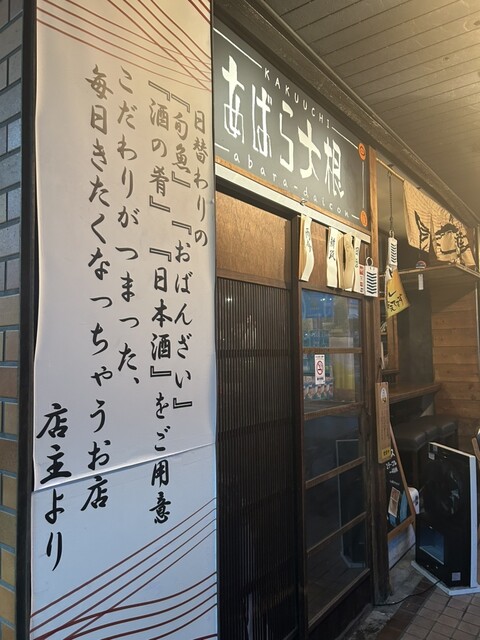 日替わりの
『旬魚』『おばんざい』
『酒の肴』『日本酒』をご用意
こだわりがつまった、
毎日きたくなっちゃうお店
店主より
KAKUUCHI
あばら大根
abara-daicon